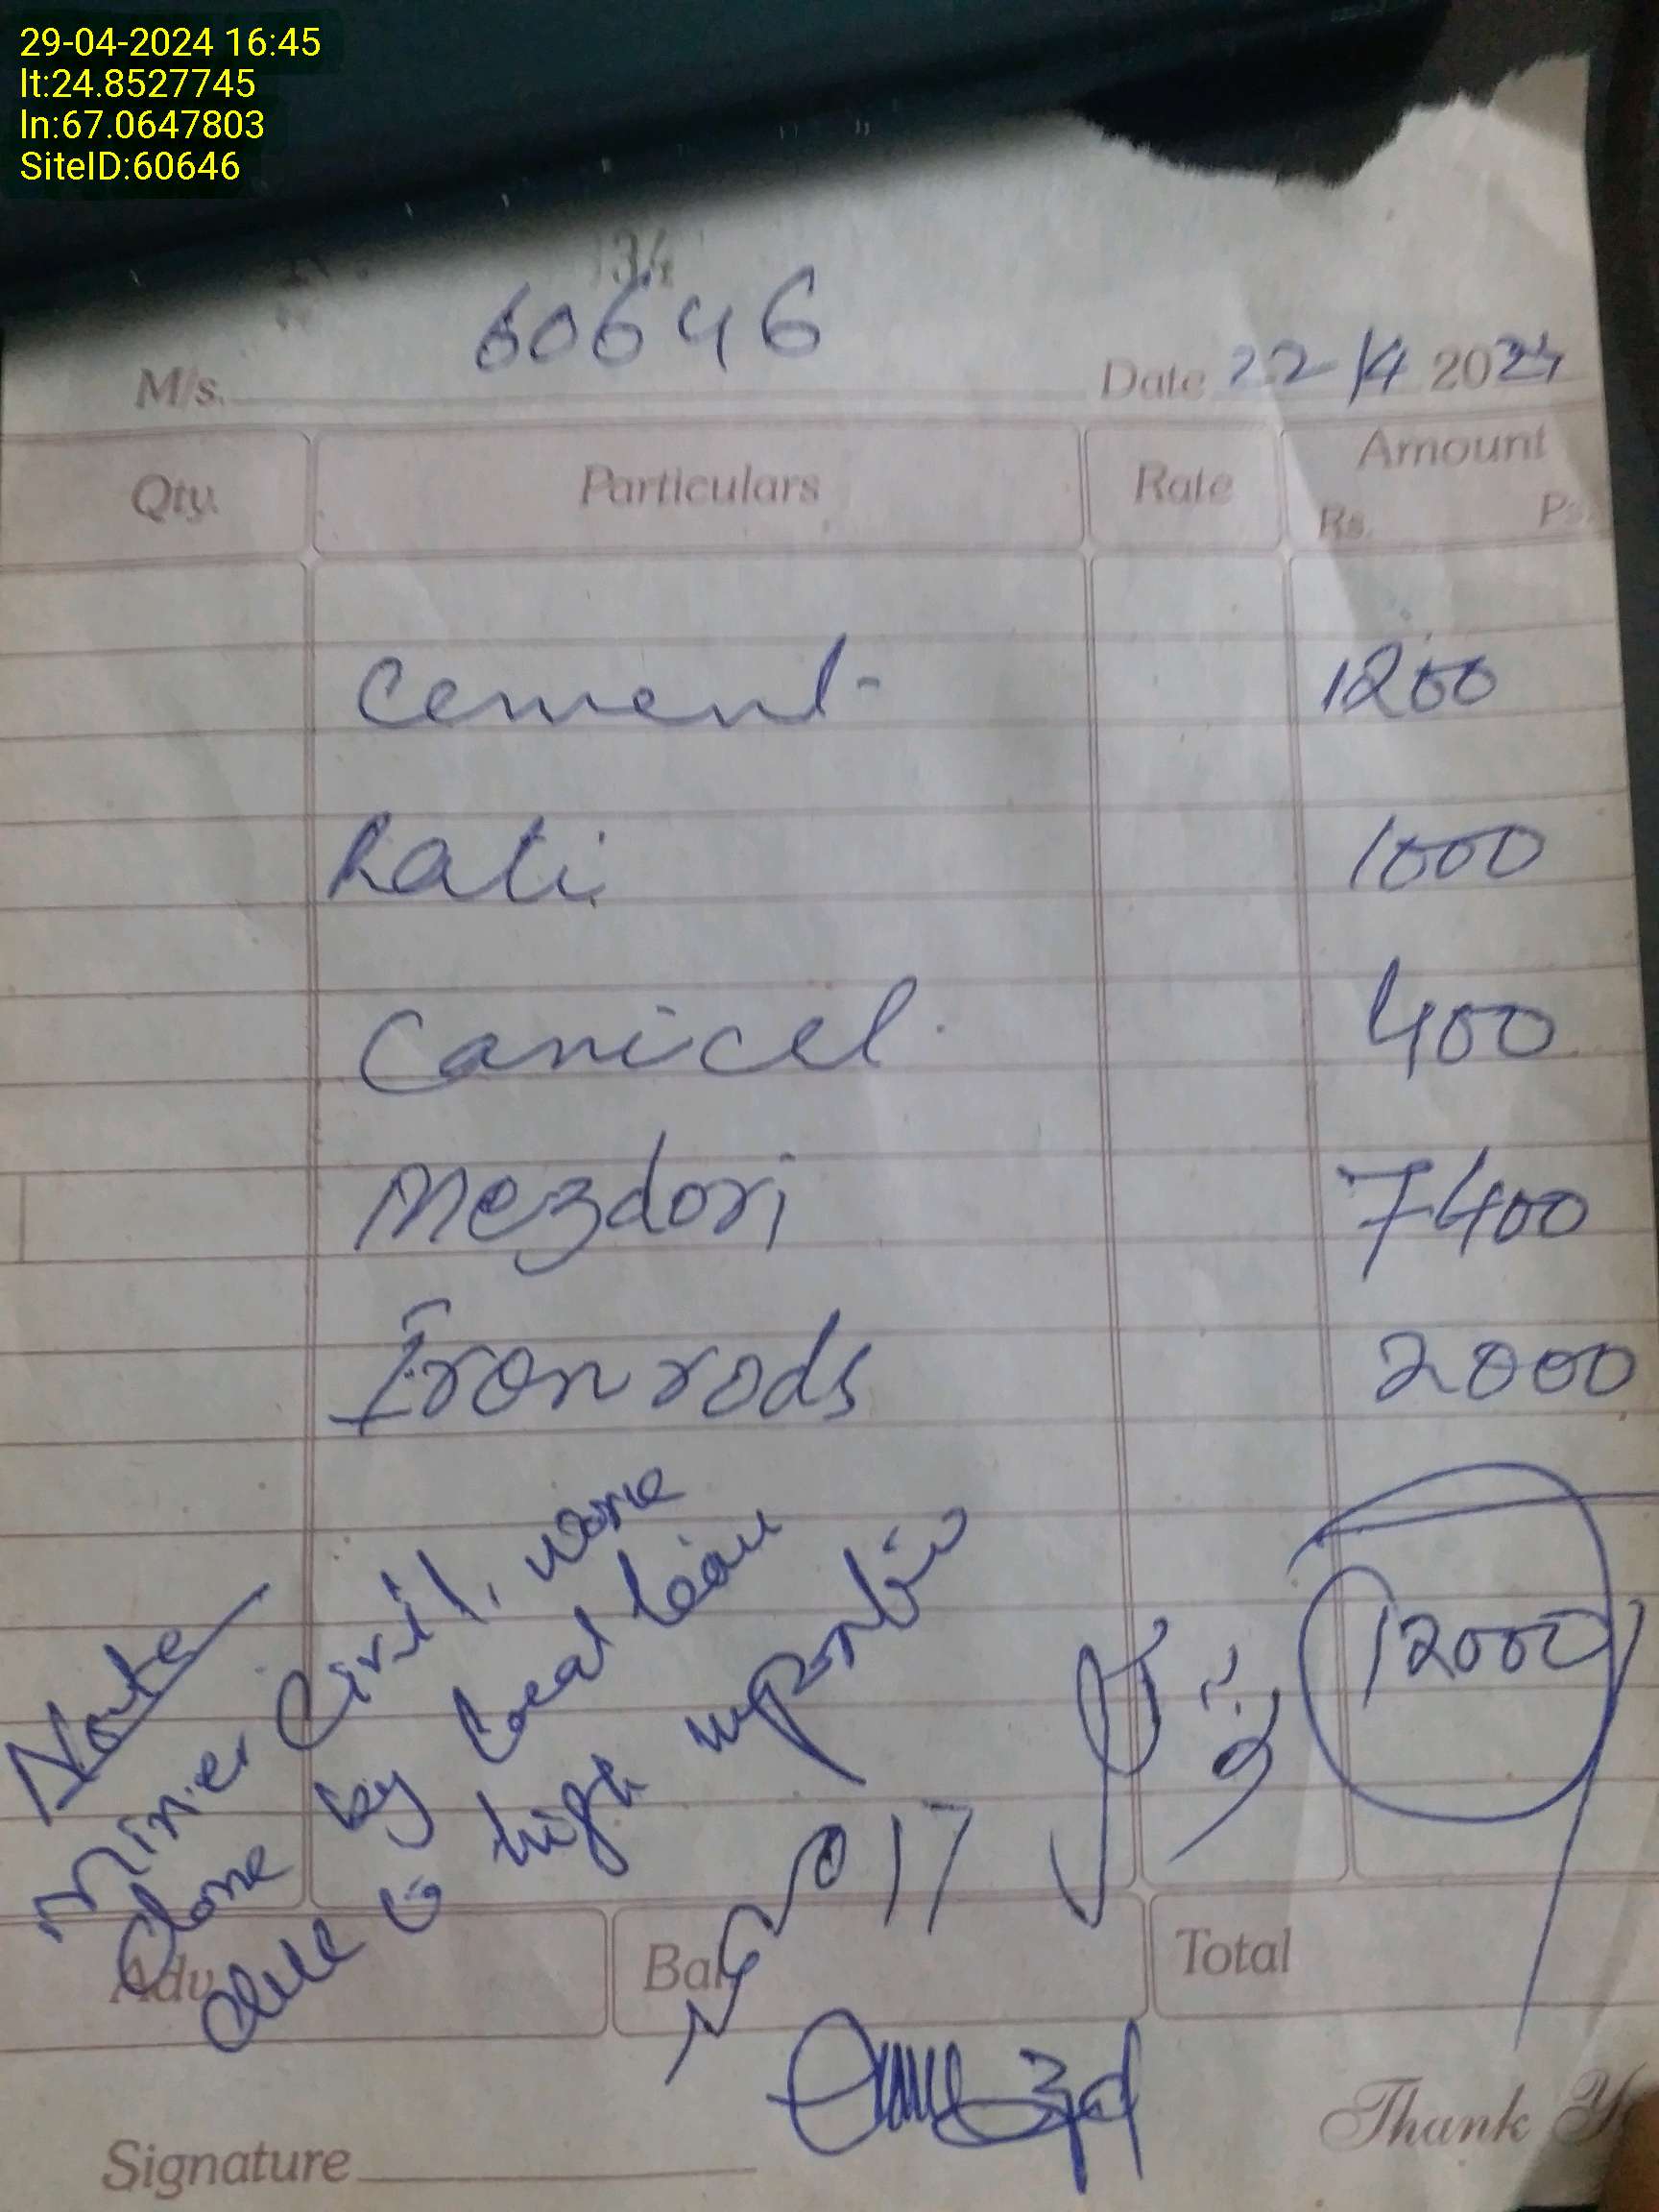 29-04-2024 16:45
lt:24.8527745
ln:67.0647803
SiteID:60646
34
60646
M/s. Date 22-/4 2024
Qty. Particulars Rate Amount
Rs. Ps.
Cement- 1200
Rati 1000
Canicel. 400
Mezdori 7400
Iron rods 2000
12000
Note
Minier Civil, work
done by local team
due to high
17
Adv. Bal Total
Signature
Thank Y